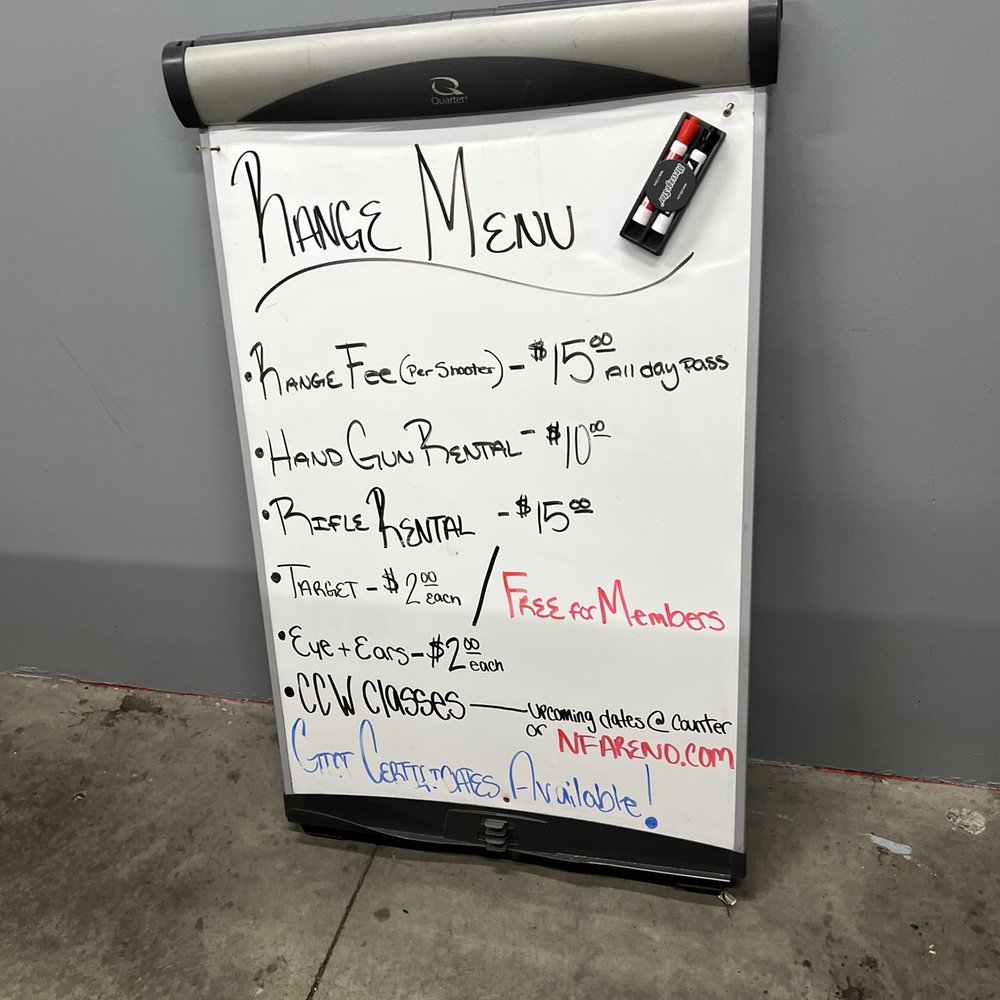 Quartet
RANGE MENU
• RANGE Fee (Per Shooter) - $15.00 All day pass
• HAND GUN RENTAL - $10.00
• RIFLE RENTAL - $15.00
• TARGET - $2.00 each / FREE for Members
• Eye + Ears - $2.00 each
• CCW Classes — upcoming dates @ counter
or NFARENO.COM
GIFT CERTIFICATES Available!